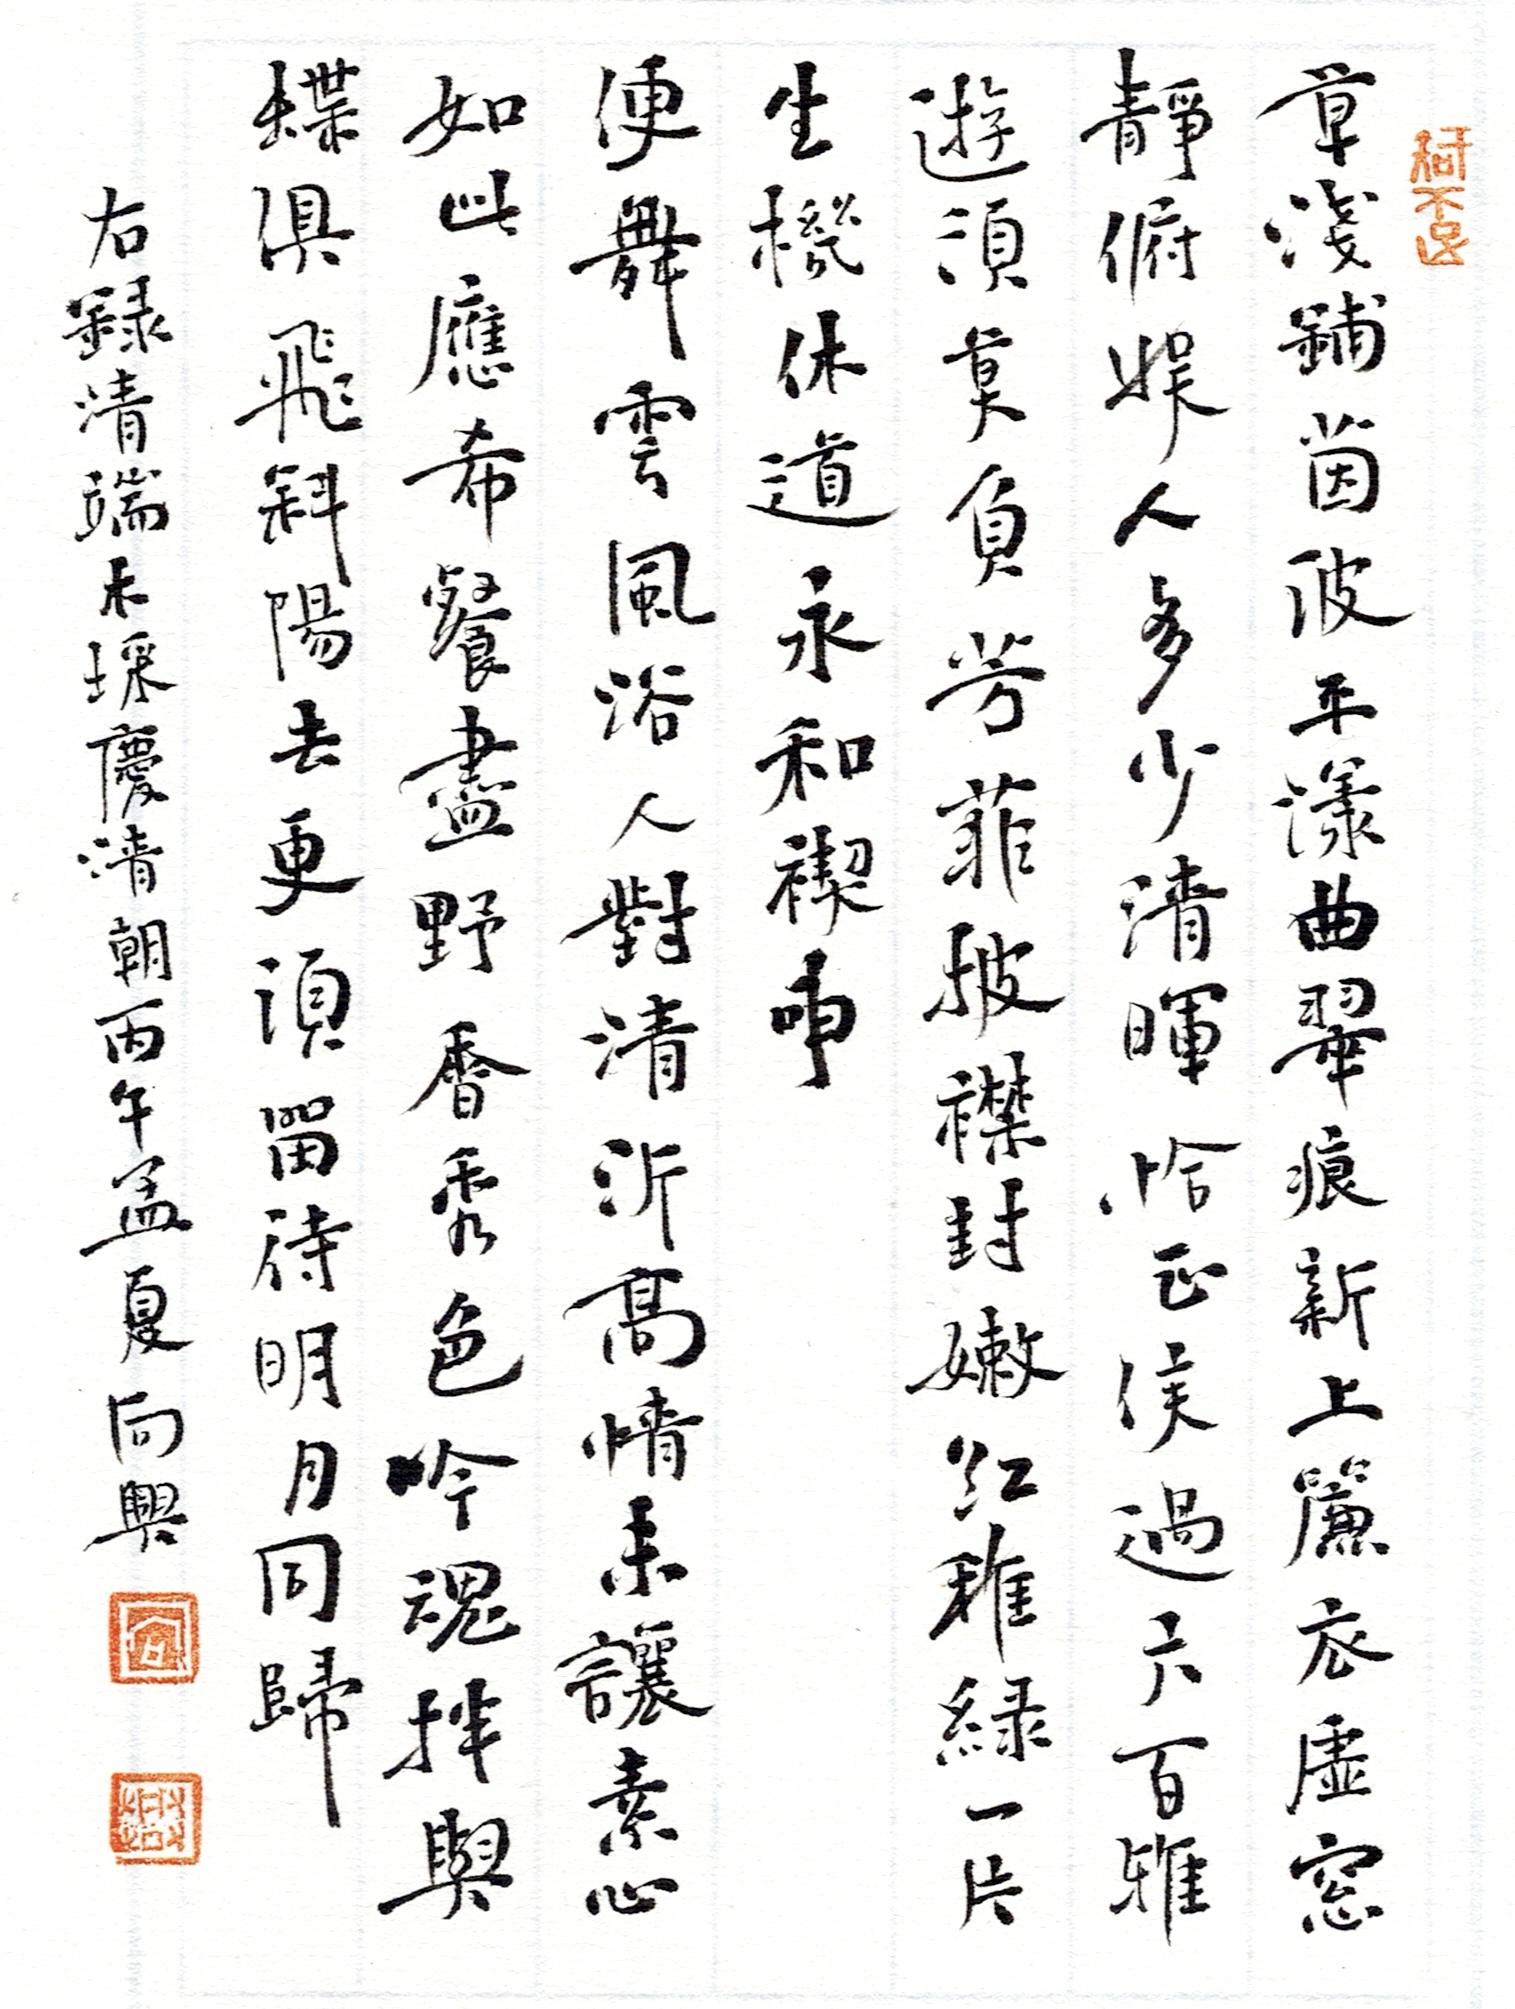 草淺鋪茵波平漾曲翠痕新上簾衣虛窓
靜俯娛人多少清暉恰正候過六百雅
遊須莫負芳菲披襟封嫩紅稚綠一片
生機休道永和禊事
便舞雲風浴人對清沂高情未讓素心
如此應希餐盡野香秀色吟魂拌與
蝶俱飛斜陽去更須留待明月同歸
右錄清端木埰慶清朝丙午孟夏向興